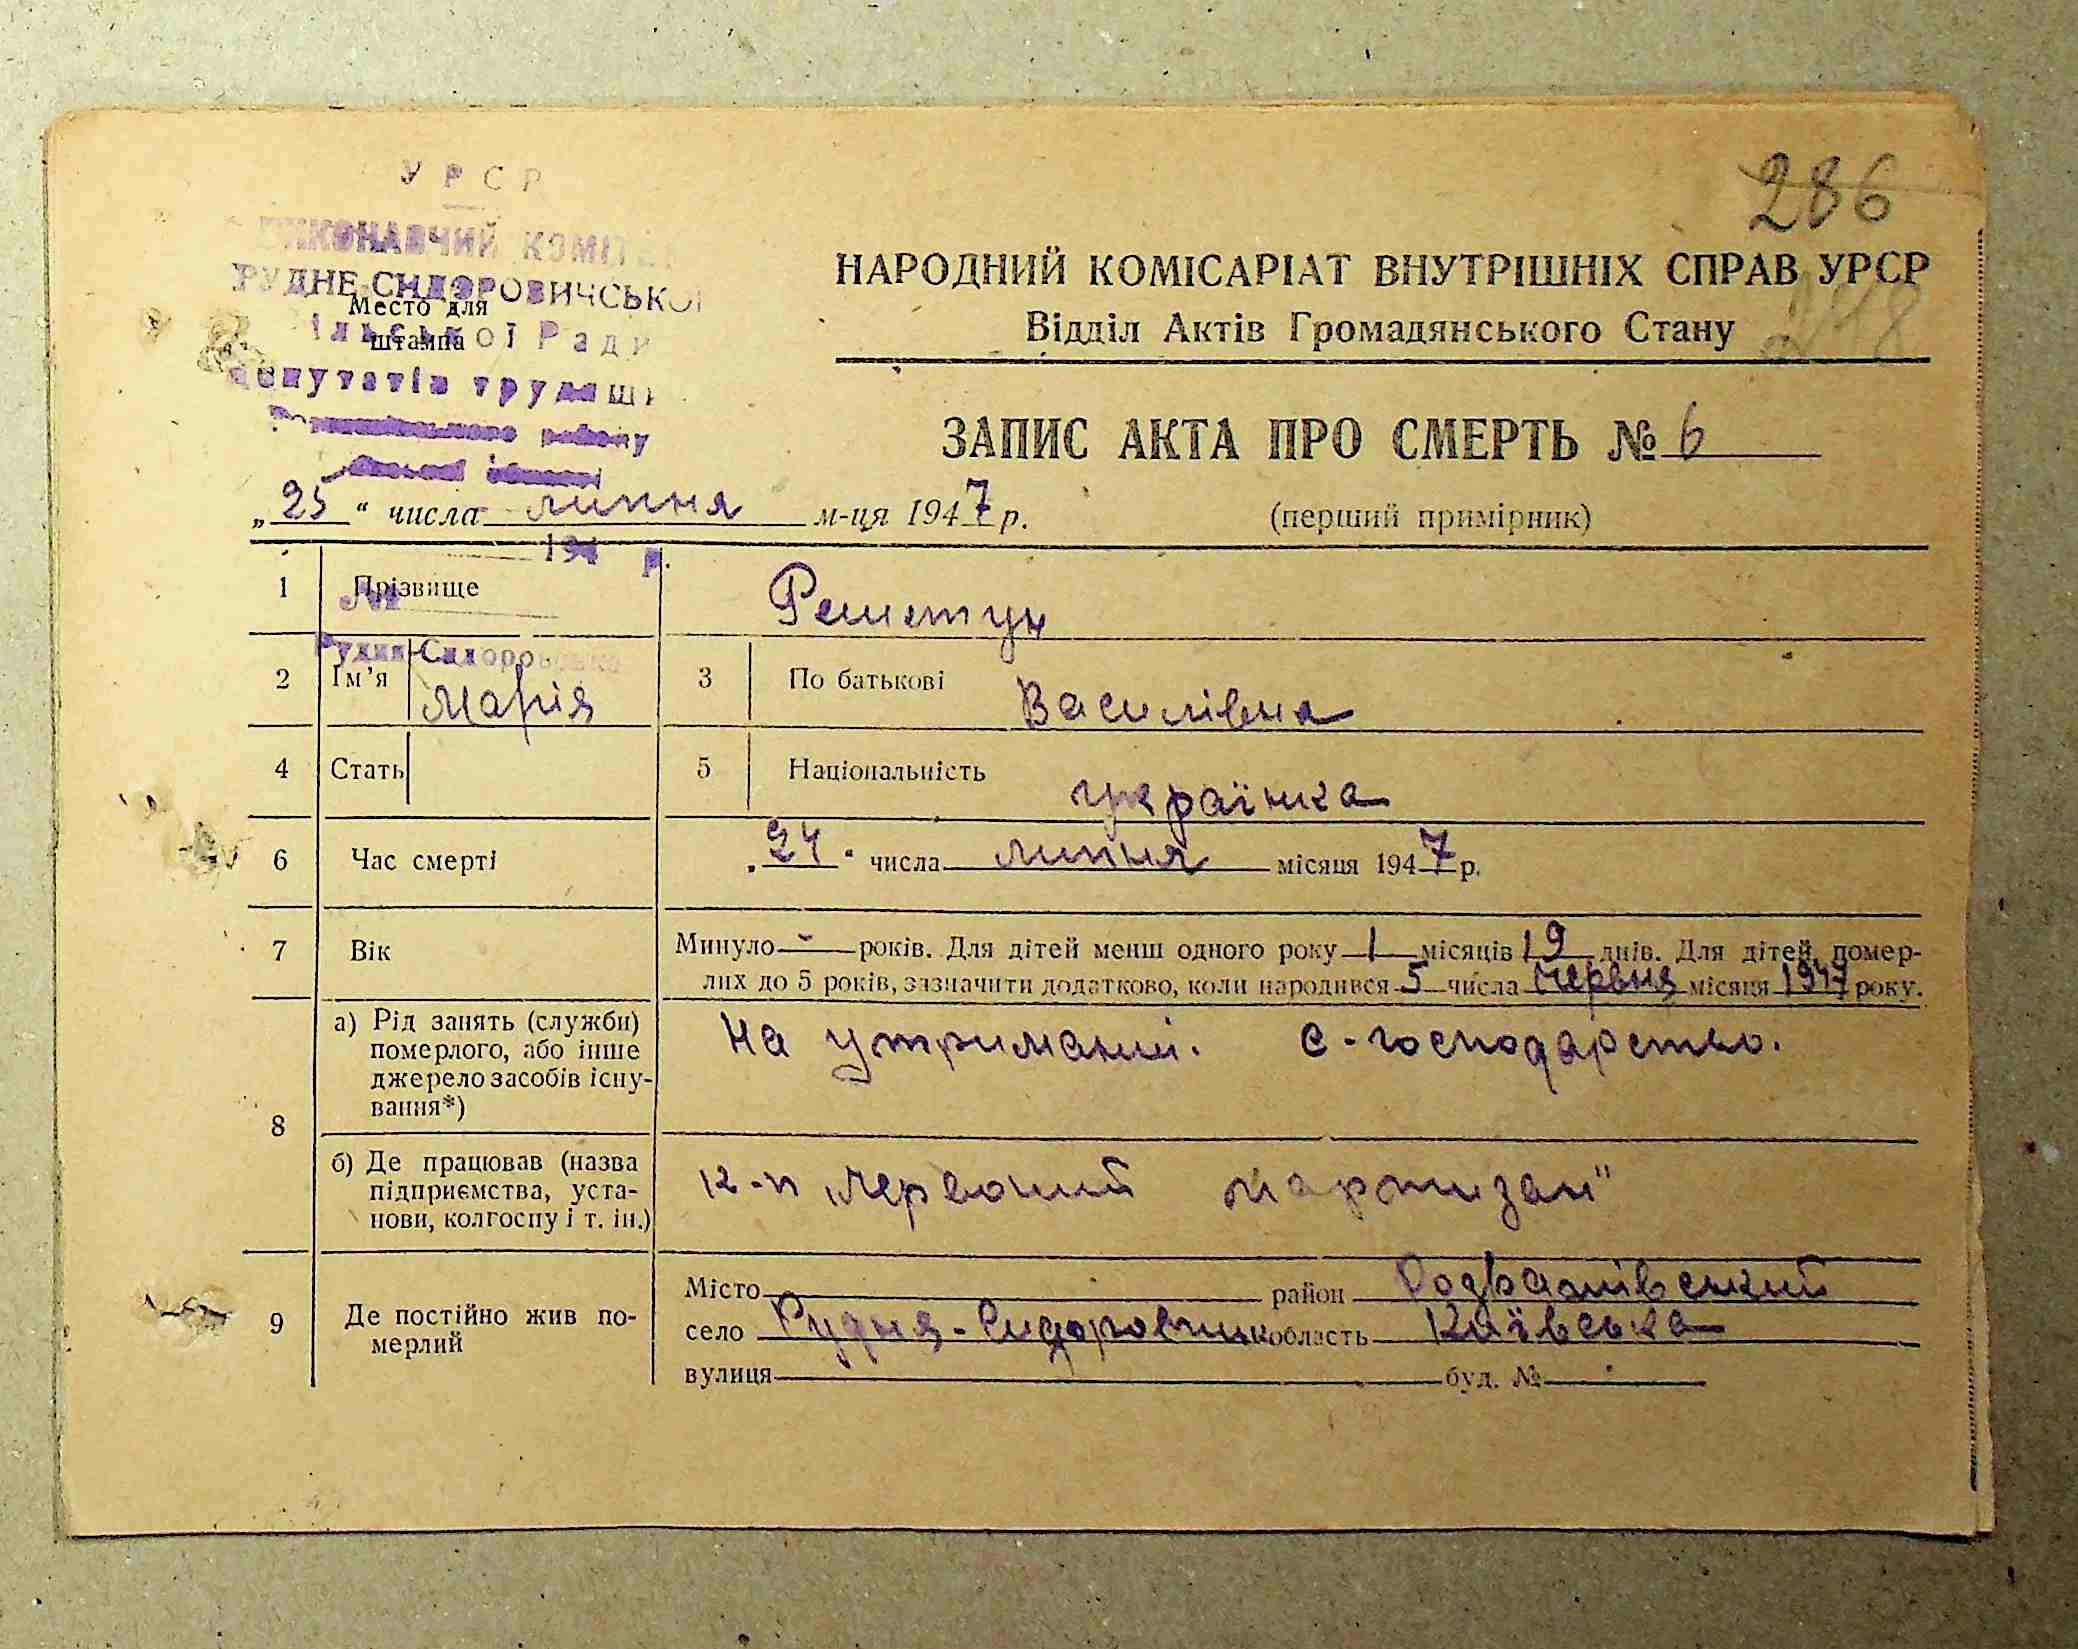 286
УРСР
ВИКОНАВЧИЙ КОМІТЕ
РУДНЕ-СИДОРОВИЧСЬКОЇ
Место для
штампа
ільської Ради
депутатів трудящ
району
області
НАРОДНИЙ КОМІСАРІАТ ВНУТРІШНІХ СПРАВ УРСР
Відділ Актів Громадянського Стану
218
ЗАПИС АКТА ПРО СМЕРТЬ № 6
„25“ числа липня м-ця 1947 р.
(перший примірник)
194 р.
1 Прізвище Решетун
№
Рудня-Сидоровичи
2 Ім’я Марія 3 По батькові Василівна
4 Стать 5 Національність українка
6 Час смерті „24“ числа липня місяця 1947 р.
7 Вік Минуло - років. Для дітей менш одного року 1 місяців 19 днів. Для дітей, помер-
лих до 5 років, зазначити додатково, коли народився 5 числа червня місяця 1947 року.
8 а) Рід занять (служби)
померлого, або інше
джерело засобів існу-
вання*)
На утриманні. с-господарство.
б) Де працював (назва
підприємства, уста-
нови, колгоспу і т. ін.)
к-п „Червоний партизан"
9 Де постійно жив по-
мерлий
Місто район Розважівський
село Рудня-Сидоровичи область Київська
вулиця буд. №